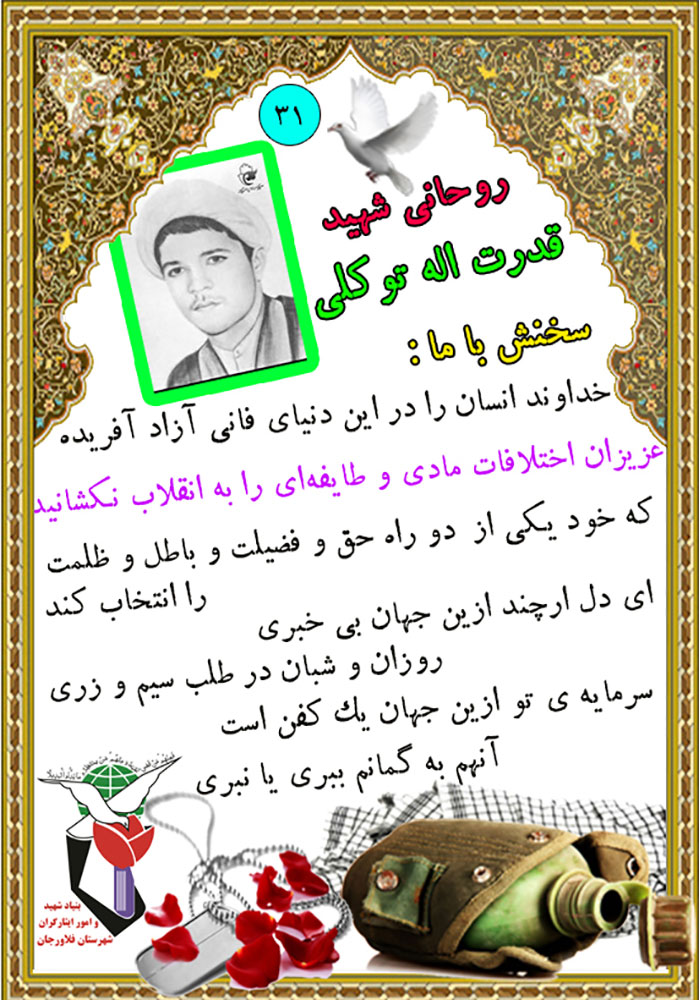 ۳۱
روحانی شهید
قدرت اله توکلی
سخنش با ما :
خداوند انسان را در این دنیای فانی آزاد آفریده
عزیزان اختلافات مادی و طایفه‌ای را به انقلاب نکشانید
که خود یکی از دو راه حق و فضیلت و باطل و ظلمت
را انتخاب کند
ای دل ارچند ازین جهان بی خبری
روزان و شبان در طلب سیم و زری
سرمایه ی تو ازین جهان یك کفن است
آنهم به گمانم ببری یا نبری
بنیاد شهید
و امور ایثارگران
شهرستان فلاورجان